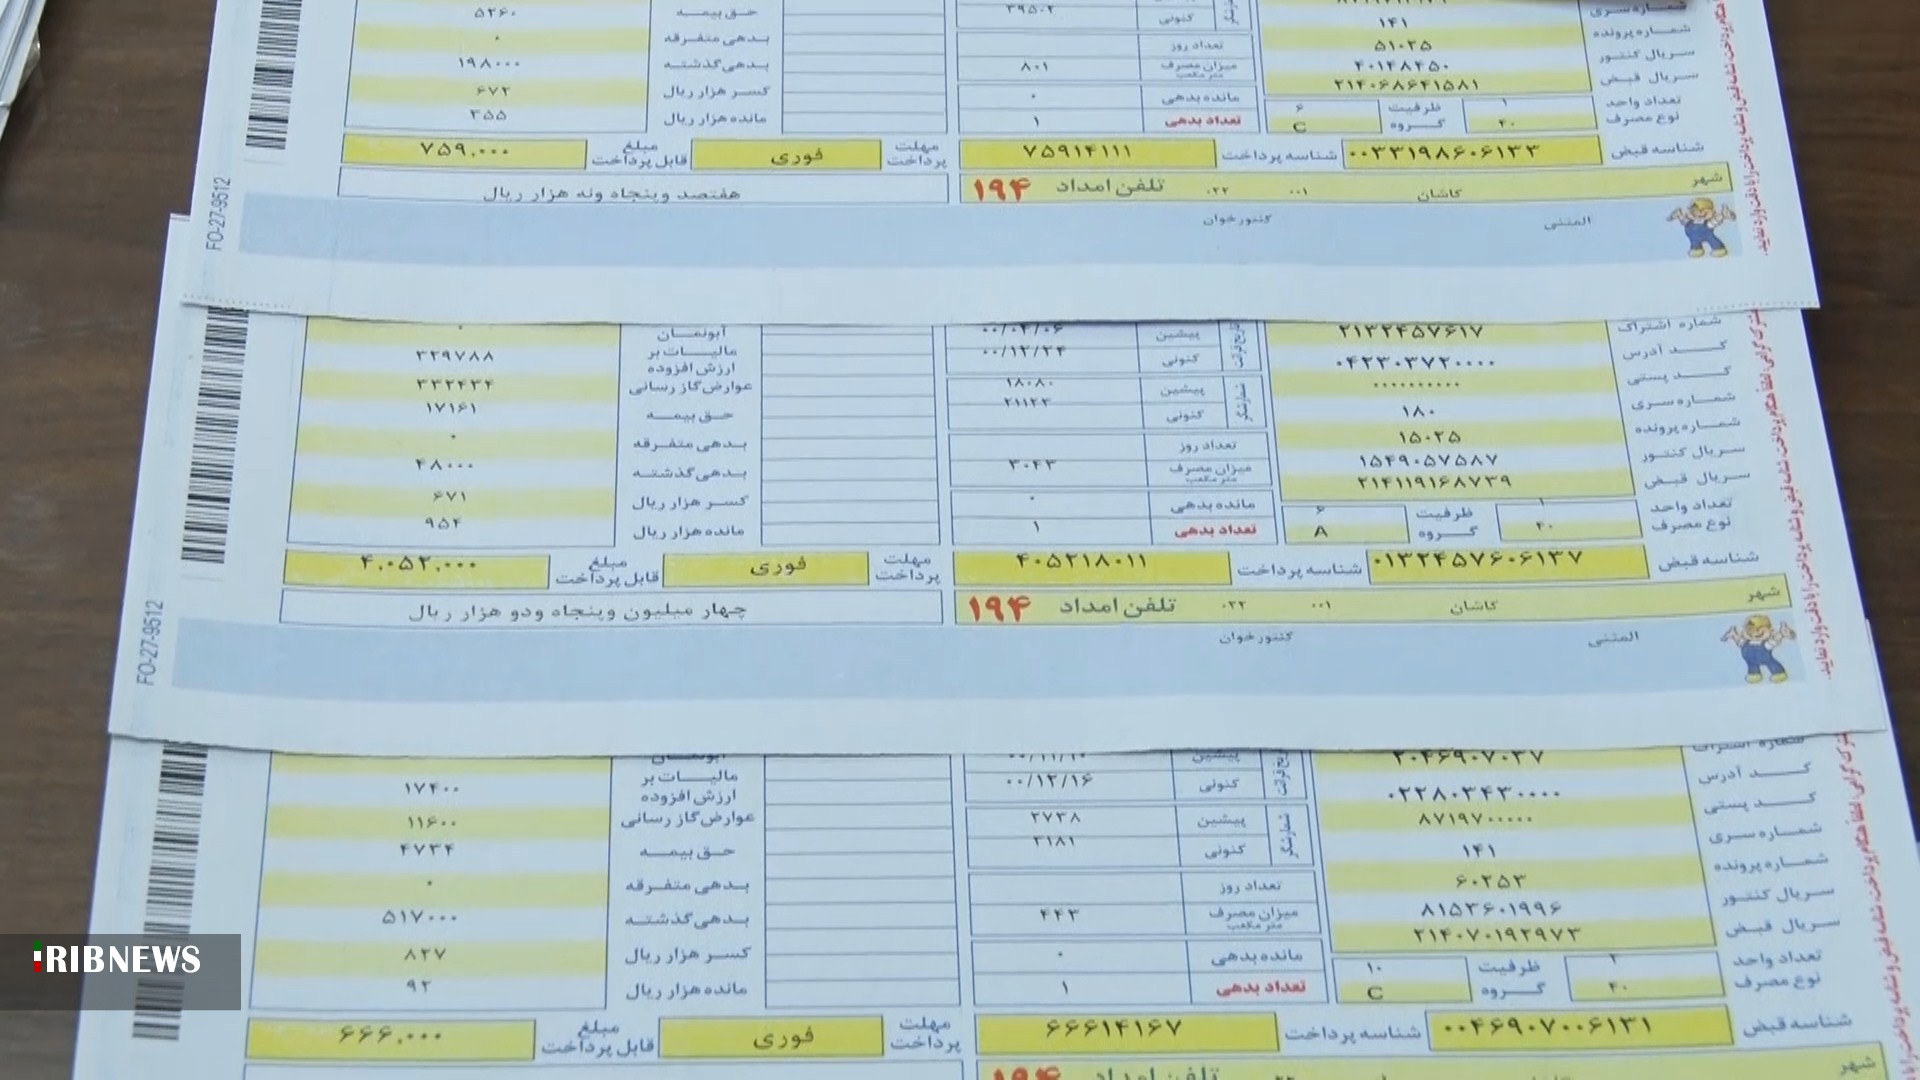 حق بیمه ۵۲۶۰
بدهی متفرقه ۰
بدهی گذشته ۱۹۸۰۰۰
کسر هزار ریال ۶۷۲
مانده هزار ریال ۳۵۵
کنونی ۳۹۵۰۲
تعداد روز
میزان مصرف متر مکعب ۸۰۱
مانده بدهی ۰
تعداد بدهی ۱
شماره سری ۱۴۱
شماره پرونده ۵۱۰۲۵
سریال کنتور ۴۰۱۴۸۴۵۰
سریال قبض ۲۱۴۰۶۸۶۴۱۵۸۱
تعداد واحد ۱ ظرفیت ۶
نوع مصرف ۲۰ گروه C
شناسه قبض ۰۰۳۳۱۹۸۶۰۶۱۳۳ شناسه پرداخت ۷۵۹۱۴۱۱۱ مهلت پرداخت فوری مبلغ قابل پرداخت ۷۵۹.۰۰۰
شهر کاشان ۰۰۱ ۰۲۲ تلفن امداد ۱۹۴ هفتصد وپنجاه ونه هزار ریال
المثنی کنتور خوان
FO-27-9512
آبونمان ۰
مالیات بر ارزش افزوده ۳۲۹۷۸۸
عوارض گاز رسانی ۳۳۲۴۳۴
حق بیمه ۱۷۱۶۱
بدهی متفرقه ۰
بدهی گذشته ۴۸۰۰۰
کسر هزار ریال ۶۷۱
مانده هزار ریال ۹۵۴
پیشین ۰۰/۰۲/۰۶
کنونی ۰۰/۱۲/۲۴
پیشین ۱۸۰۸۰
کنونی ۲۱۱۲۳
تعداد روز
میزان مصرف متر مکعب ۳۰۴۳
مانده بدهی ۰
تعداد بدهی ۱
شماره اشتراک ۲۱۳۲۴۵۷۶۱۷
کد آدرس ۰۴۲۳۰۳۷۲۰۰۰۰
کد پستی ۰۰۰۰۰۰۰۰۰۰
شماره سری ۱۸۰
شماره پرونده ۱۵۰۲۵
سریال کنتور ۱۵۴۹۰۵۷۵۸۷
سریال قبض ۲۱۴۱۱۹۱۶۸۷۳۹
تعداد واحد ۱ ظرفیت ۶
نوع مصرف ۲۰ گروه A
شناسه قبض ۰۱۳۲۴۵۷۶۰۶۱۳۷ شناسه پرداخت ۴۰۵۲۱۸۰۱۱ مهلت پرداخت فوری مبلغ قابل پرداخت ۴.۰۵۲.۰۰۰
شهر کاشان ۰۰۱ ۰۲۲ تلفن امداد ۱۹۴ چهار میلیون وپنجاه ودو هزار ریال
المثنی کنتور خوان
FO-27-9512
آبونمان
مالیات بر ارزش افزوده ۱۷۴۰۰
عوارض گاز رسانی ۱۱۶۰۰
حق بیمه ۴۷۳۴
بدهی متفرقه ۰
بدهی گذشته ۵۱۷۰۰۰
کسر هزار ریال ۸۲۷
مانده هزار ریال ۹۲
پیشین ۰۰/۱۱/۱۰
کنونی ۰۰/۱۲/۱۶
پیشین ۲۷۳۸
کنونی ۳۱۸۱
تعداد روز
میزان مصرف متر مکعب ۴۴۳
مانده بدهی ۰
تعداد بدهی ۱
شماره اشتراک ۲۰۴۶۹۰۷۰۳۷
کد آدرس ۰۲۲۸۰۳۴۳۰۰۰۰
کد پستی ۸۷۱۹۷۰۰۰۰۰
شماره سری ۱۴۱
شماره پرونده ۶۰۲۵۳
سریال کنتور ۸۱۵۳۶۰۱۹۹۶
سریال قبض ۲۱۴۰۷۰۱۹۲۹۷۳
تعداد واحد ۲ ظرفیت ۱۰
نوع مصرف ۲۰ گروه C
شناسه قبض ۰۰۴۶۹۰۷۰۰۶۱۳۱ شناسه پرداخت ۶۶۶۱۴۱۶۷ مهلت پرداخت فوری مبلغ قابل پرداخت ۶۶۶.۰۰۰
شهر تلفن امداد ۱۹۴
IRIBNEWS